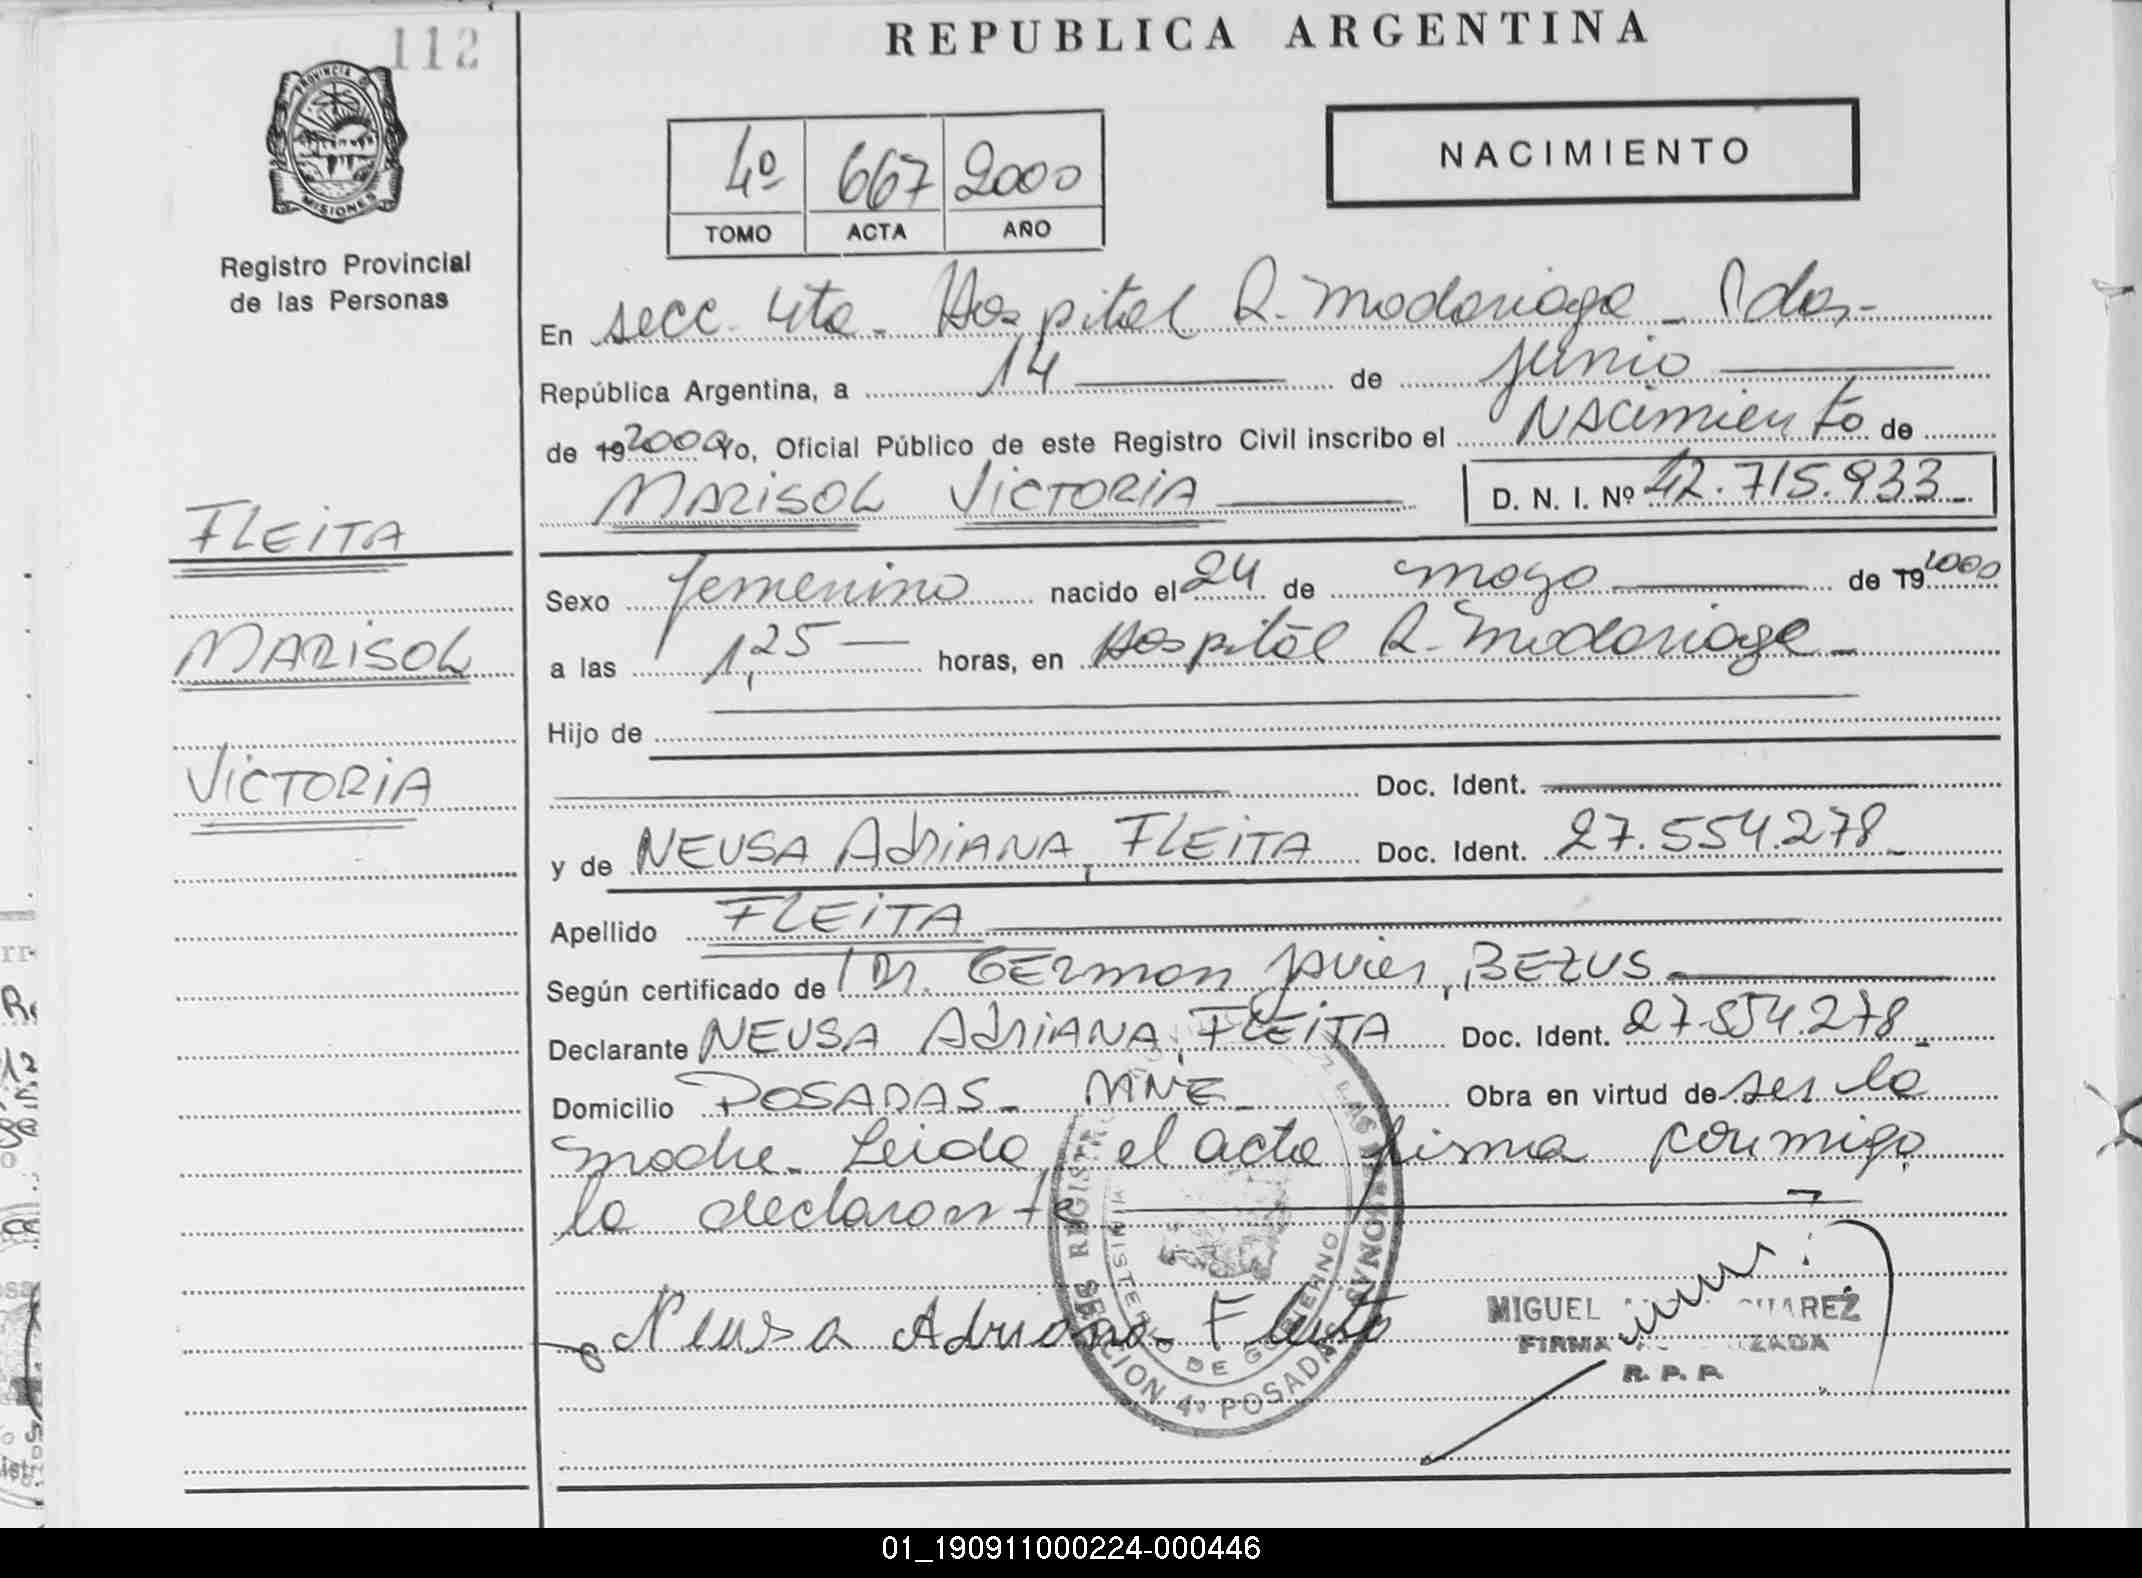 112
REPUBLICA ARGENTINA
PROVINCIA DE
MISIONES
Registro Provincial
de las Personas
4º 667 2000
TOMO ACTA AÑO
NACIMIENTO
En secc. 4ta. Hospital R. Madariaga - Pdas.-
República Argentina, a 14 de junio
de 19 2000 Yo, Oficial Público de este Registro Civil inscribo el Nacimiento de
MARISOL VICTORIA D. N. I. Nº 42.715.933
FLEITA
MARISOL
VICTORIA
Sexo femenino nacido el 24 de mayo de 19 2000
a las 1,25 horas, en Hospital R. Madariaga
Hijo de
Doc. Ident.
y de NEUSA AdriANA, FLEITA Doc. Ident. 27.554.278
Apellido FLEITA
Según certificado de Dr. GERman Javier, BEZUS
Declarante NEUSA AdriANA, FLEITA Doc. Ident. 27.554.278
Domicilio POSADAS - MNE Obra en virtud de ser la
madre. Leida el acta firma conmigo
la declarante
Neusa Adriana Fleita
MINISTERIO DE GOBIERNO
SECCION 4º POSADAS
MIGUEL
FIRMA
R. P. P.
01_190911000224-000446